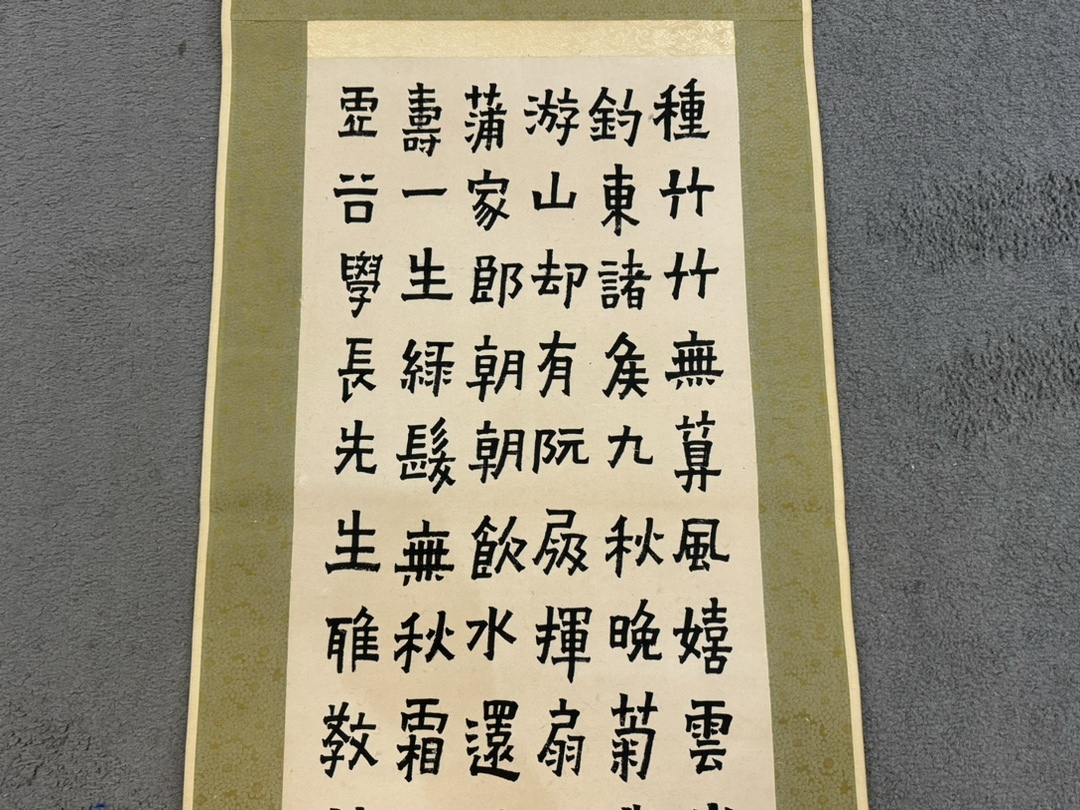 種竹竹無算風嬉雲
釣東諸矦九秋晚菊
游山却有阮屐揮扇
蒲家郎朝朝飲水還
壽一生緑髮無秋霜
雲谷學長先生雅教